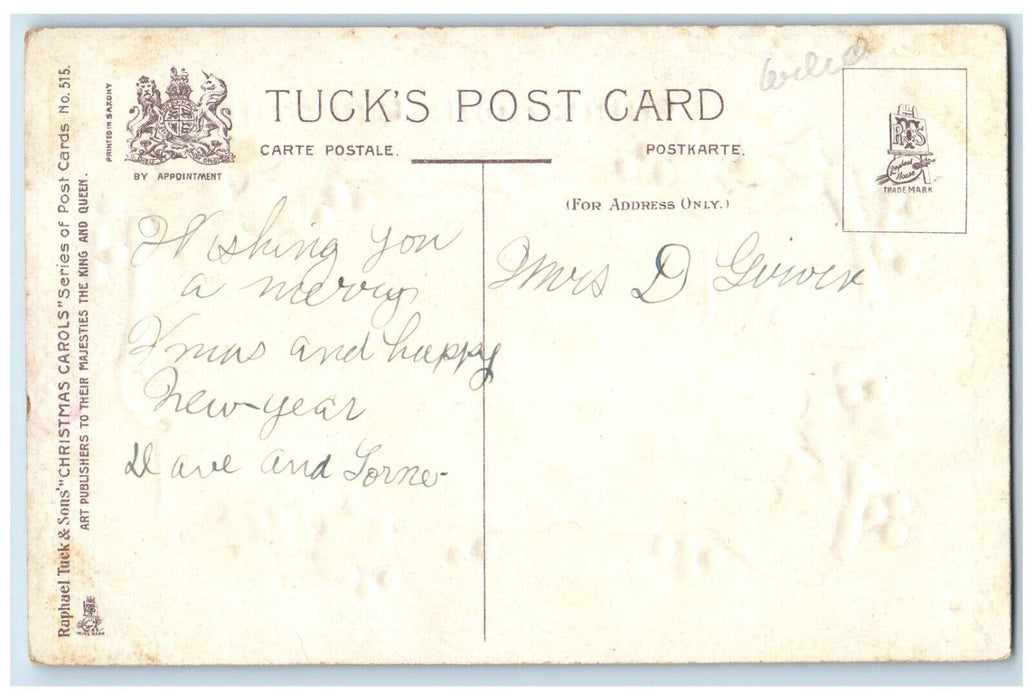 Raphael Tuck & Sons' "CHRISTMAS CAROLS" Series of Post Cards No. 515.
ART PUBLISHERS TO THEIR MAJESTIES THE KING AND QUEEN.
TRADE MARK
PRINTED IN SAXONY
BY APPOINTMENT
TUCK'S POST CARD
CARTE POSTALE.
POSTKARTE.
(FOR ADDRESS ONLY.)
RTS
Raphael
House
TRADE MARK
Wishing you
a merry
Xmas and happy
New-year
Dave and Lorne
Mrs D